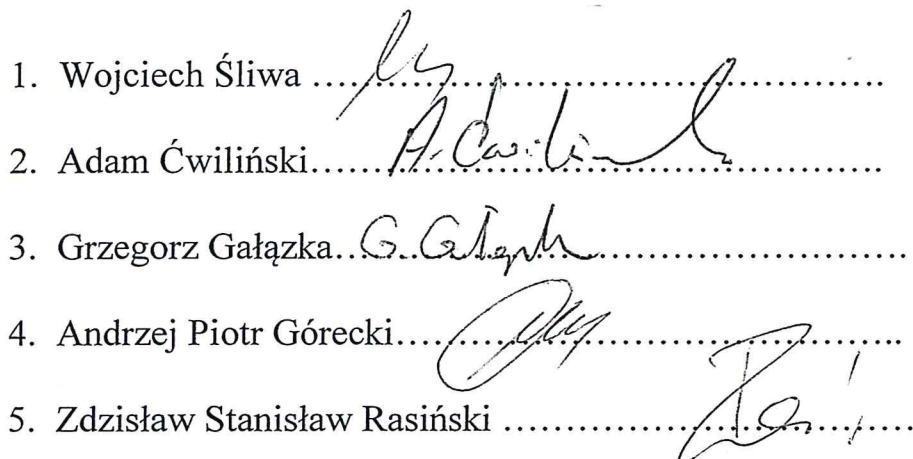 1. Wojciech Śliwa ......................................................
2. Adam Ćwiliński...... A. Ćwiliń ......................................
3. Grzegorz Gałązka.. G. Gałązka ..................................
4. Andrzej Piotr Górecki................................................
5. Zdzisław Stanisław Rasiński .......................................